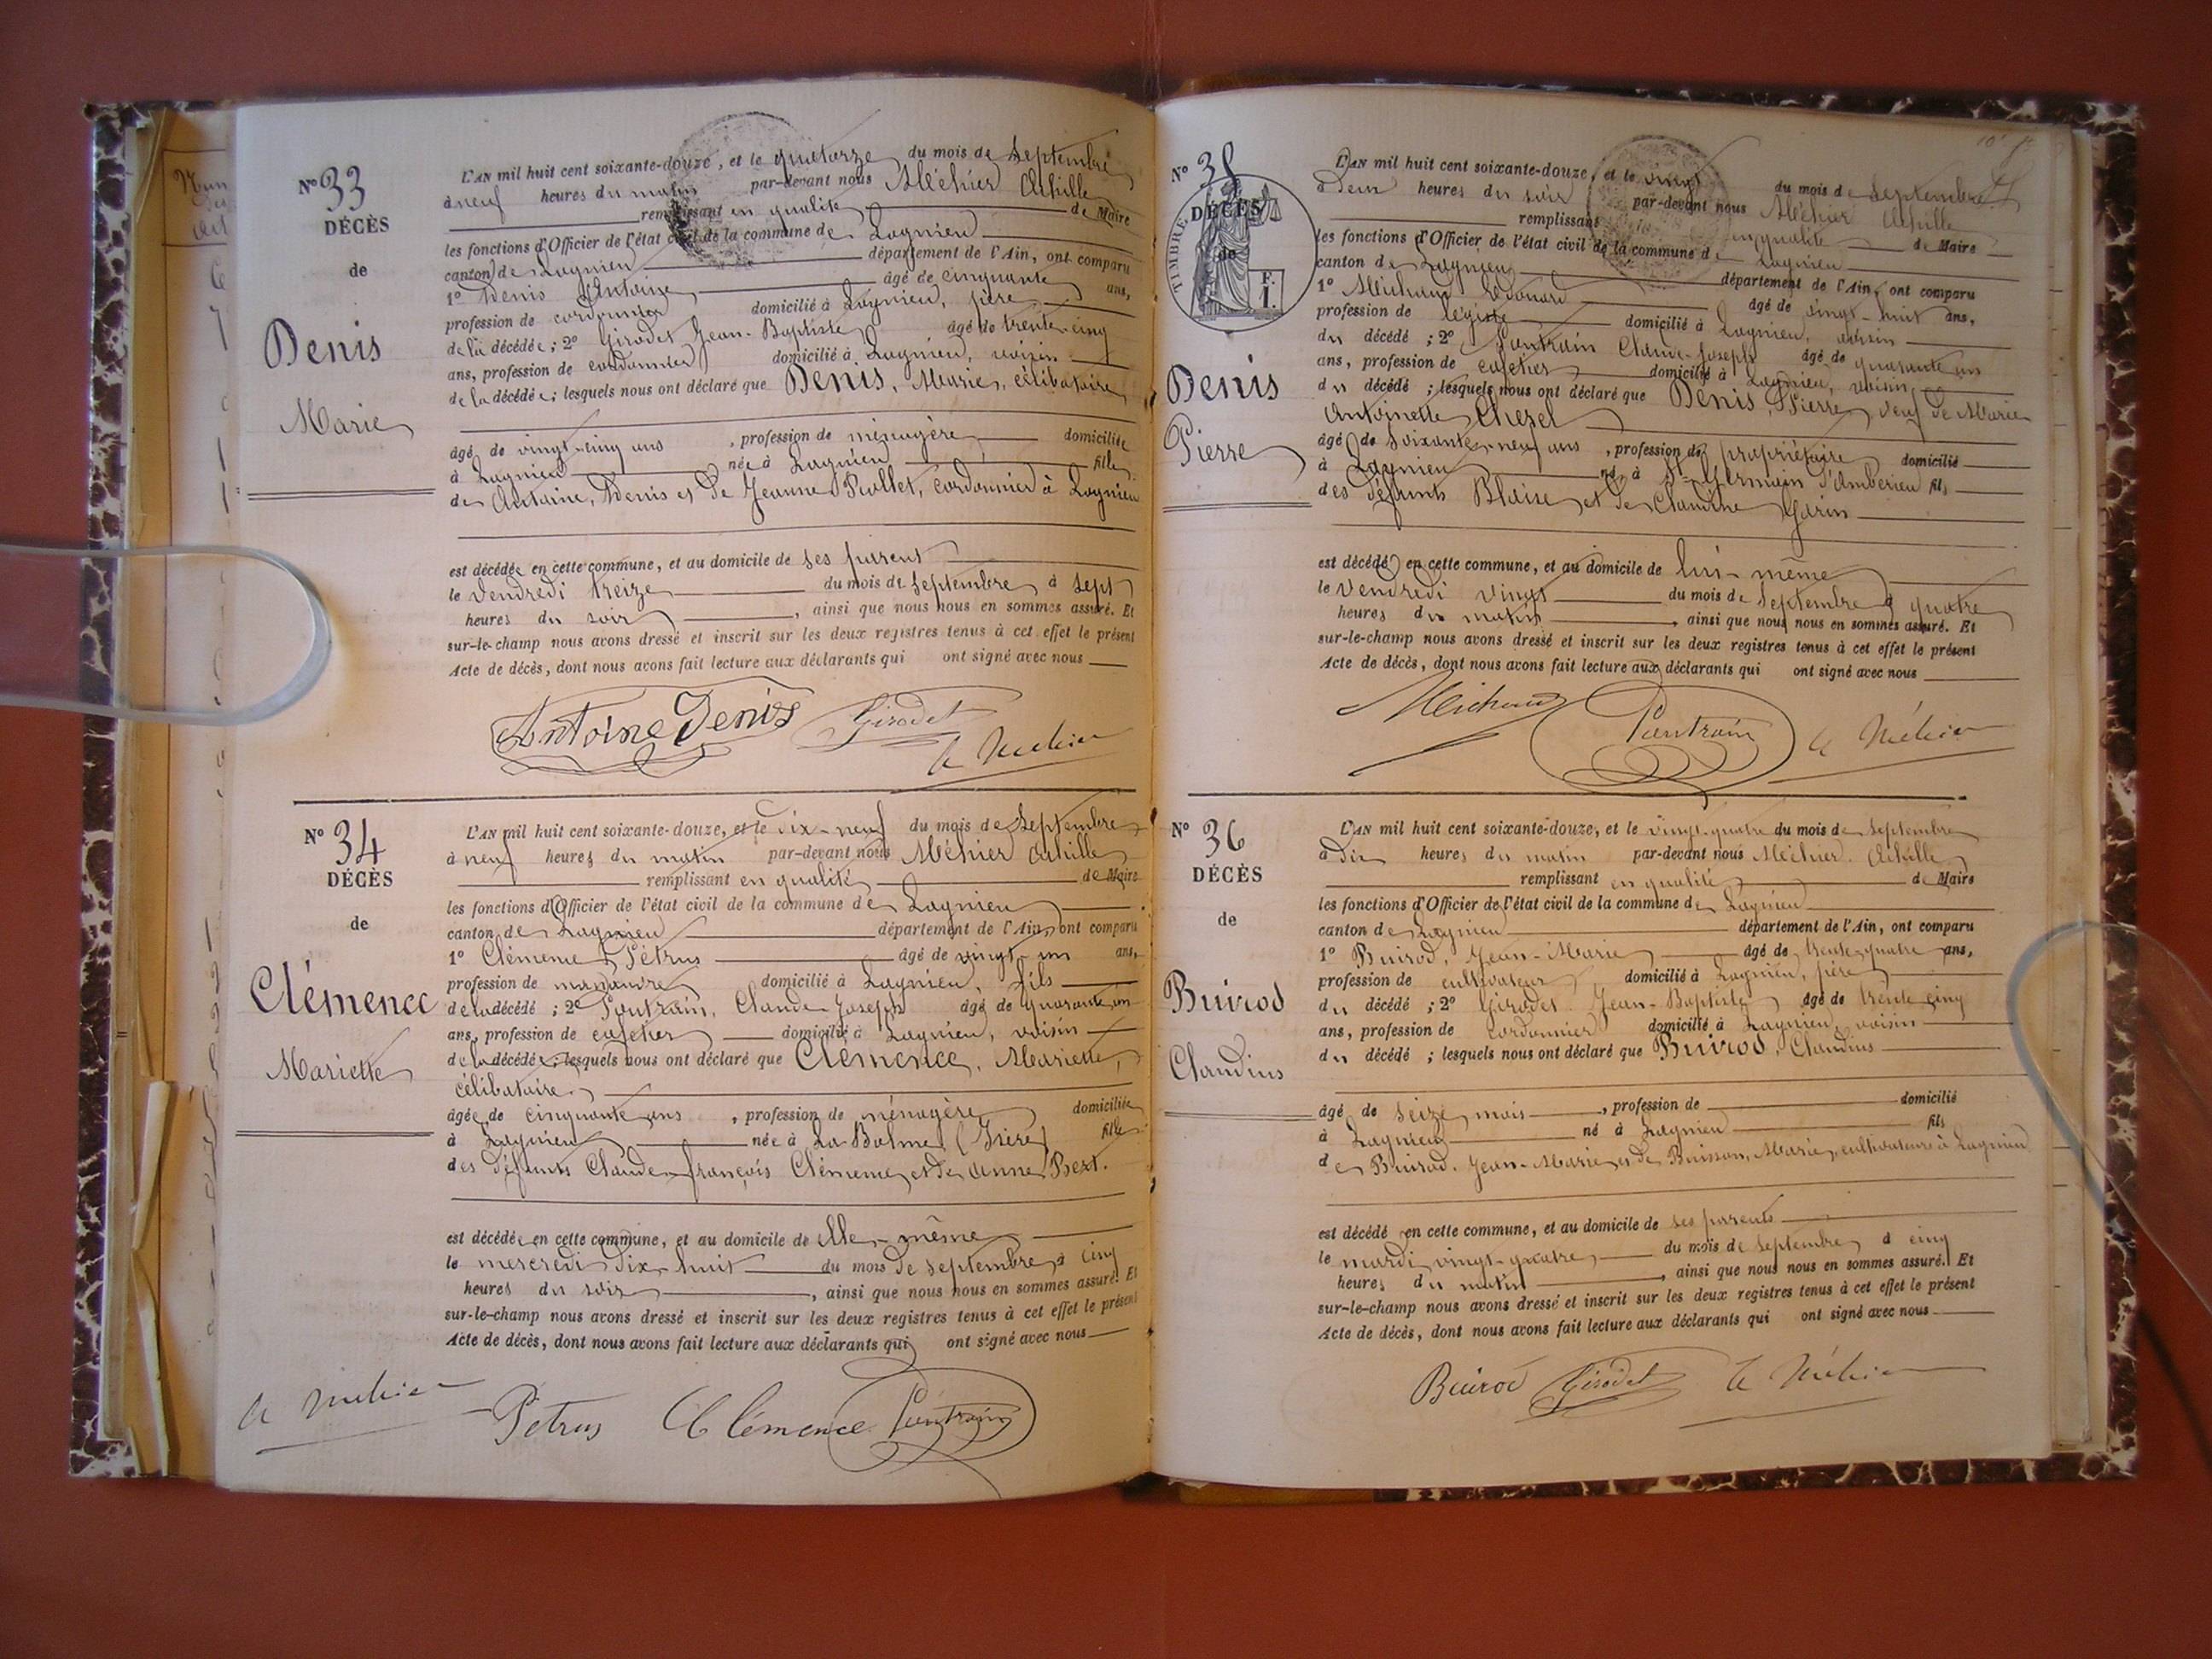 N° 33
DÉCÈS
de
Denis
Marie
L'AN mil huit cent soixante-douze, et le quatorze du mois de septembre
à neuf heures du matin par-devant nous Méhier Achille
remplissant en qualité de Maire
les fonctions d'Officier de l'état civil de la commune de Lagnieu
canton de Lagnieu département de l'Ain, ont comparu
1° Denis Antoine âgé de cinquante ans,
profession de cordonnier domicilié à Lagnieu, père
de la décédée; 2° Girodet Jean-Baptiste âgé de trente-cinq
ans, profession de cordonnier domicilié à Lagnieu, voisin
de la décédée; lesquels nous ont déclaré que Denis, Marie, célibataire
âgée de vingt-cinq ans, profession de ménagère domiciliée
à Lagnieu née à Lagnieu fille
de Antoine, Denis et de Jeanne Piollet, cordonnier à Lagnieu
est décédée en cette commune, et au domicile de ses parents
le vendredi treize du mois de septembre à sept
heures du soir, ainsi que nous nous en sommes assuré. Et
sur-le-champ nous avons dressé et inscrit sur les deux registres tenus à cet effet le présent
Acte de décès, dont nous avons fait lecture aux déclarants qui ont signé avec nous
Antoine Denis Girodet A Méhier
N° 34
DÉCÈS
de
Clémence
Mariette
L'AN mil huit cent soixante-douze, et le dix-neuf du mois de septembre
à neuf heures du matin par-devant nous Méhier Achille
remplissant en qualité de Maire
les fonctions d'Officier de l'état civil de la commune de Lagnieu
canton de Lagnieu département de l'Ain, ont comparu
1° Clémence Pétrus âgé de vingt-un ans,
profession de domicilié à Lagnieu, fils
de la décédé; 2° Pontrain, Claude Joseph âgé de quarante-un
ans, profession de cafetier domicilié à Lagnieu, voisin
de la décédée; lesquels nous ont déclaré que Clémence, Mariette,
célibataire.
âgée de cinquante ans, profession de ménagère domiciliée
à Lagnieu née à La Balme (Isère) fille
des défunts Claude-françois Clémence et de Anne Bert.
est décédée en cette commune, et au domicile de elle-même
le mercredi dix-huit du mois de septembre à cinq
heures du soir, ainsi que nous nous en sommes assuré. Et
sur-le-champ nous avons dressé et inscrit sur les deux registres tenus à cet effet le présent
Acte de décès, dont nous avons fait lecture aux déclarants qui ont signé avec nous
A Méhier Pétrus Clémence Pontrain
N° 35
TIMBRE
F. 1.
DÉCÈS
de
Denis
Pierre
L'AN mil huit cent soixante-douze, et le vingt du mois de septembre
à deux heures du soir par-devant nous Méhier Achille
remplissant en qualité de Maire
les fonctions d'Officier de l'état civil de la commune de Lagnieu
canton de Lagnieu département de l'Ain, ont comparu
1° Michaud Edouard âgé de vingt-huit ans,
profession de légiste domicilié à Lagnieu, voisin
du décédé; 2° Pontrain Claude-Joseph âgé de quarante un
ans, profession de cafetier domicilié à Lagnieu, voisin
du décédé; lesquels nous ont déclaré que Denis, Pierre, veuf de Marie
Antoinette Chezel
âgé de soixante-neuf ans, profession de propriétaire domicilié
à Lagnieu né à St Germain d'Ambérieu fils
des défunts Blaise et de Claudine Garin
est décédé en cette commune, et au domicile de lui-même
le vendredi vingt du mois de septembre à quatre
heures du matin, ainsi que nous nous en sommes assuré. Et
sur-le-champ nous avons dressé et inscrit sur les deux registres tenus à cet effet le présent
Acte de décès, dont nous avons fait lecture aux déclarants qui ont signé avec nous
Michaud Pontrain A Méhier
N° 36
DÉCÈS
de
Buirod
Claudius
L'AN mil huit cent soixante-douze, et le vingt-quatre du mois de septembre
à dix heures du matin par-devant nous Méhier Achille
remplissant en qualité de Maire
les fonctions d'Officier de l'état civil de la commune de Lagnieu
canton de Lagnieu département de l'Ain, ont comparu
1° Buirod, Jean-Marie âgé de trente-quatre ans,
profession de cultivateur domicilié à Lagnieu, père
du décédé; 2° Girodet Jean-Baptiste âgé de trente cinq
ans, profession de cordonnier domicilié à Lagnieu, voisin
du décédé; lesquels nous ont déclaré que Buirod, Claudius
âgé de seize mois, profession de domicilié
à Lagnieu né à Lagnieu fils
de Buirod, Jean-Marie et de Buisson, Marie, cultivateurs à Lagnieu
est décédé en cette commune, et au domicile de ses parents
le mardi vingt-quatre du mois de septembre à cinq
heures du matin, ainsi que nous nous en sommes assuré. Et
sur-le-champ nous avons dressé et inscrit sur les deux registres tenus à cet effet le présent
Acte de décès, dont nous avons fait lecture aux déclarants qui ont signé avec nous
Buirod Girodet A Méhier